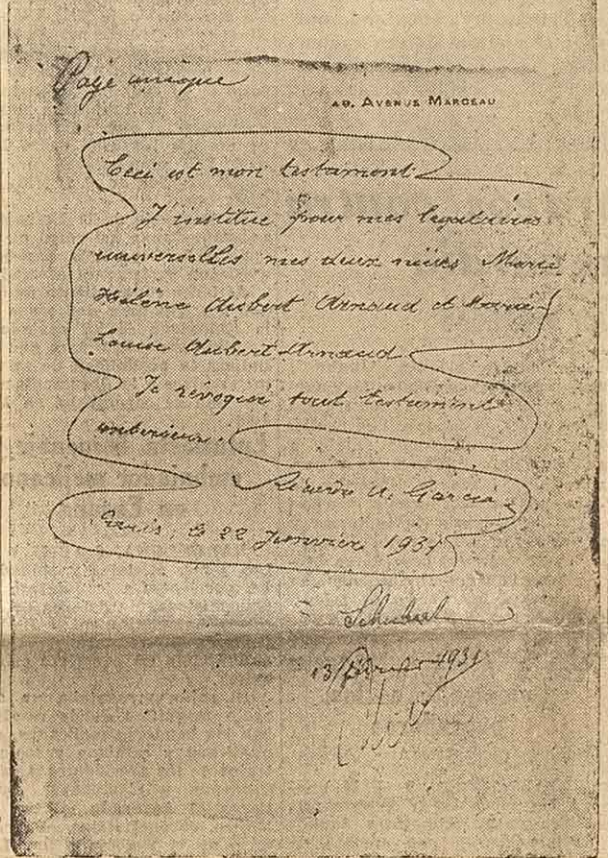 Page unique
49, AVENUE MARCEAU
Ceci est mon testament
J'institue pour mes légataires
universelles mes deux nièces Marie
Hélène Aubert Arnaud et Marie
Louise Aubert Arnaud
Je révoque tout testament
antérieur.
Ricardo A. Garcia
Paris, le 22 Janvier 1931
Schubert
13 février 1931